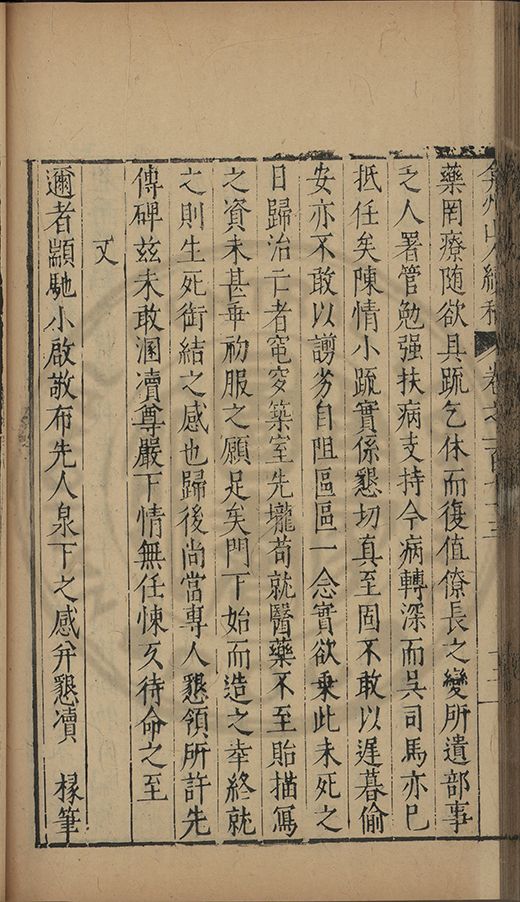 弇州山人續稿 卷之一百七十三
藥罔療隨欲具䟽乞休而復值僚長之變所遺部事
乏人署管勉强扶病支持今病轉深而吳司馬亦巳
抵任矣陳情小䟽實係懇切真至固不敢以遲暮偷
安亦不敢以謭劣自阻區區一念實欲乗此未死之
日歸治亡者窀穸築室先壠苟就醫藥不至貽描寫
之資未甚乖初服之願足矣門下始而造之幸終就
之則生死銜結之感也歸後尚當專人懇領所許先
傳碑兹未敢溷凟尊嚴下情無任悚仄待命之至
又
邇者顓馳小啟敬布先人泉下之感并懇凟 椽筆